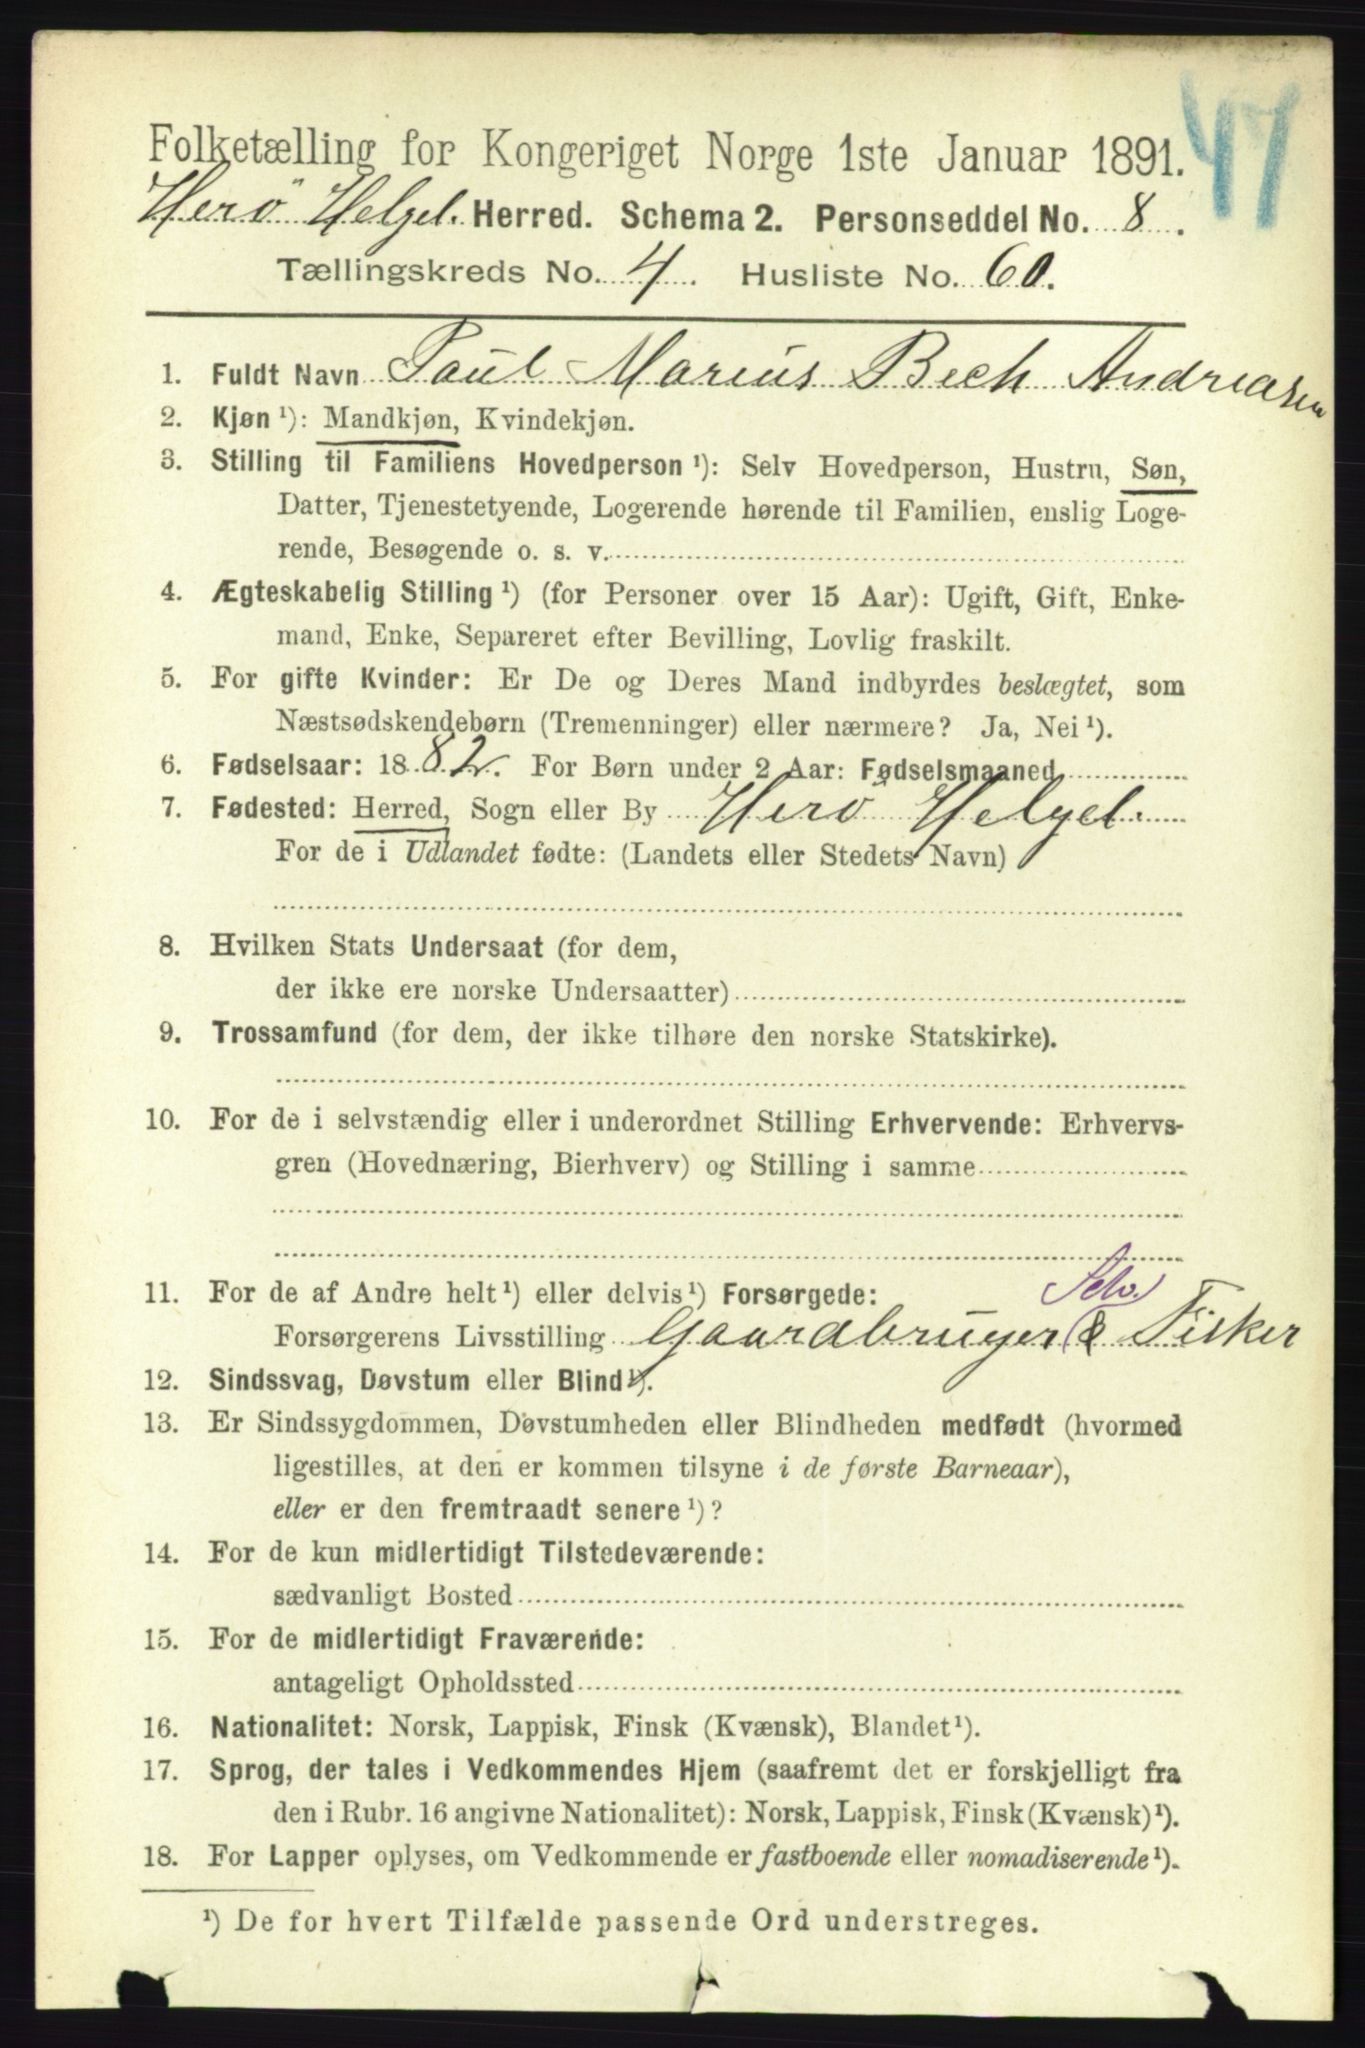 47
Folketælling for Kongeriget Norge 1ste Januar 1891.
Herö Helgel. Herred. Schema 2. Personseddel No. 8.
Tællingskreds No. 4. Husliste No. 60.
1. Fuldt Navn Paul Marius Bech Andreasen
2. Kjøn ¹): Mandkjøn, Kvindekjøn.
3. Stilling til Familiens Hovedperson ¹): Selv Hovedperson, Hustru, Søn,
Datter, Tjenestetyende, Logerende hørende til Familien, enslig Loge-
rende, Besøgende o. s. v.
4. Ægteskabelig Stilling ¹) (for Personer over 15 Aar): Ugift, Gift, Enke-
mand, Enke, Separeret efter Bevilling, Lovlig fraskilt.
5. For gifte Kvinder: Er De og Deres Mand indbyrdes beslægtet, som
Næstsødskendebørn (Tremenninger) eller nærmere? Ja, Nei ¹).
6. Fødselsaar: 1882. For Børn under 2 Aar: Fødselsmaaned
7. Fødested: Herred, Sogn eller By Herö Helgel.
For de i Udlandet fødte: (Landets eller Stedets Navn)
8. Hvilken Stats Undersaat (for dem,
der ikke ere norske Undersaatter)
9. Trossamfund (for dem, der ikke tilhøre den norske Statskirke).
10. For de i selvstændig eller i underordnet Stilling Erhvervende: Erhvervs-
gren (Hovednæring, Bierhverv) og Stilling i samme
11. For de af Andre helt ¹) eller delvis ¹) Forsørgede:
Selv.
Forsørgerens Livsstilling Gaardbruger & Fisker
12. Sindssvag, Døvstum eller Blind ¹).
13. Er Sindssygdommen, Døvstumheden eller Blindheden medfødt (hvormed
ligestilles, at den er kommen tilsyne i de første Barneaar),
eller er den fremtraadt senere ¹)?
14. For de kun midlertidigt Tilstedeværende:
sædvanligt Bosted
15. For de midlertidigt Fraværende:
antageligt Opholdssted
16. Nationalitet: Norsk, Lappisk, Finsk (Kvænsk), Blandet ¹).
17. Sprog, der tales i Vedkommendes Hjem (saafremt det er forskjelligt fra
den i Rubr. 16 angivne Nationalitet): Norsk, Lappisk, Finsk (Kvænsk) ¹).
18. For Lapper oplyses, om Vedkommende er fastboende eller nomadiserende ¹).
¹) De for hvert Tilfælde passende Ord understreges.